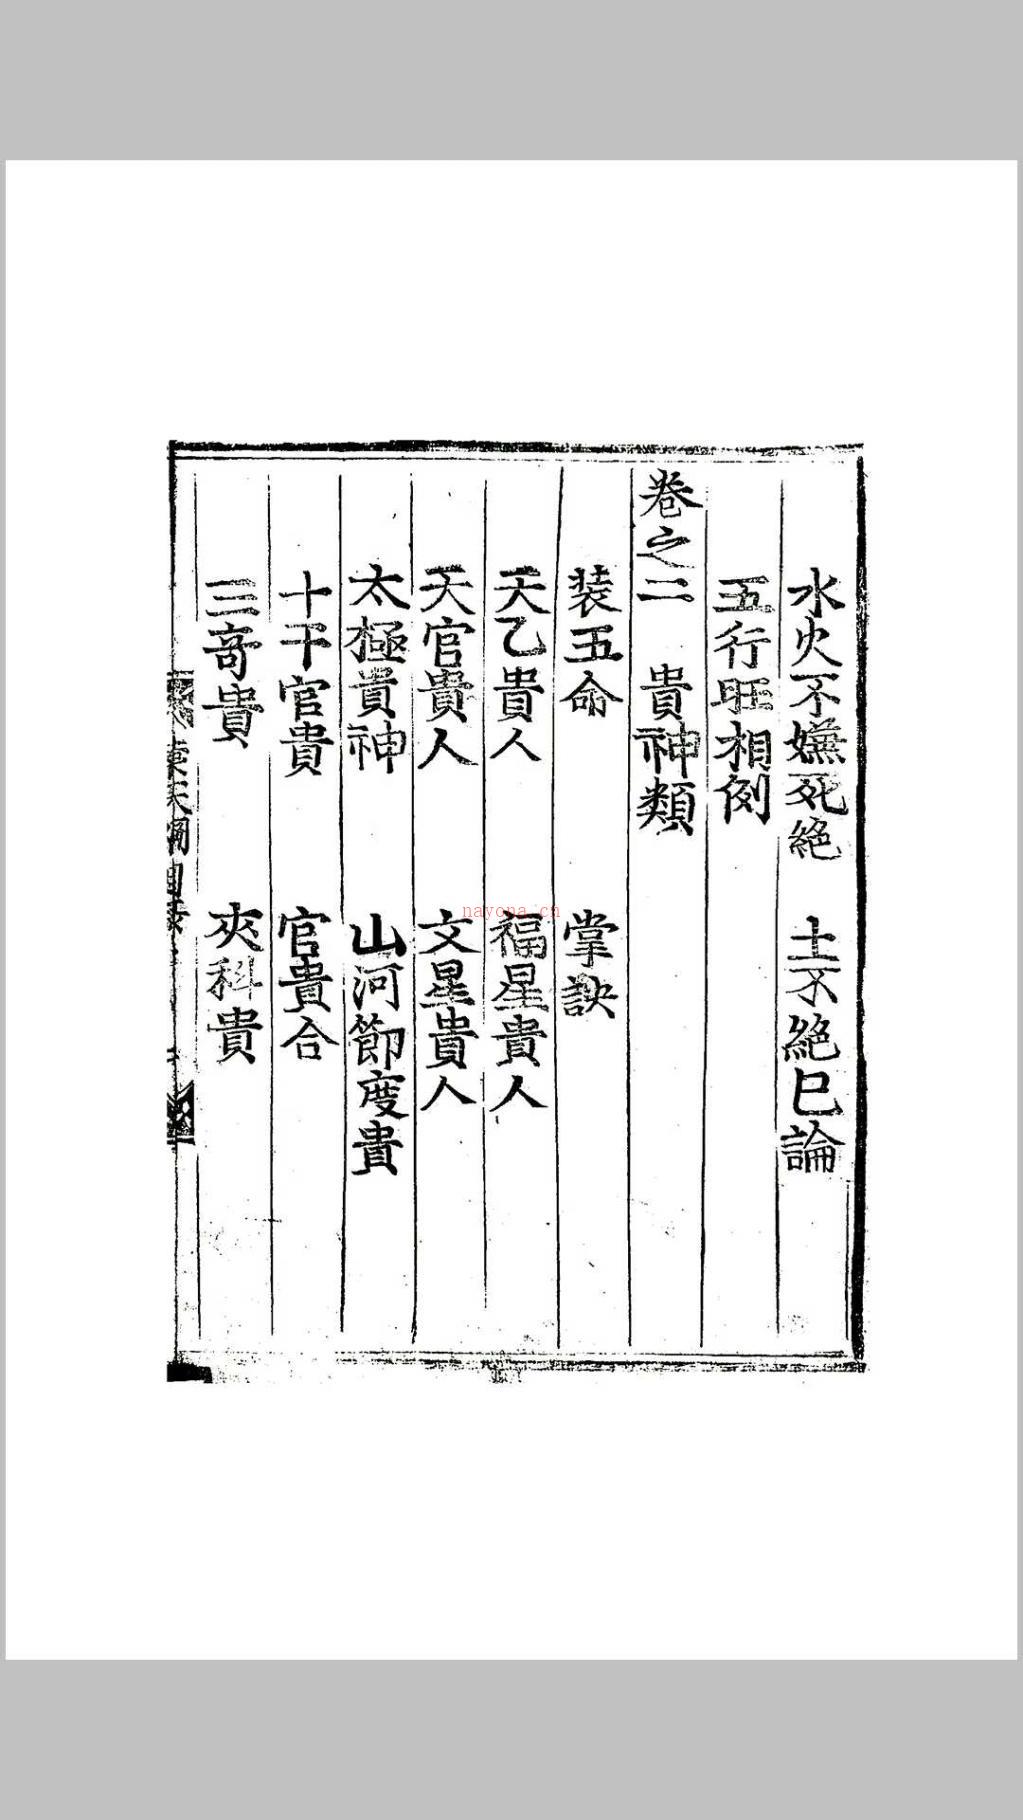 水火不嫌死絶　土不絶巳論
五行旺相例
卷之二　貴神類
装五命　掌訣
天乙貴人　福星貴人
天官貴人　文星貴人
太極貴神　山河節度貴
十干官貴　官貴合
三竒貴　夾科貴
nayona.cn